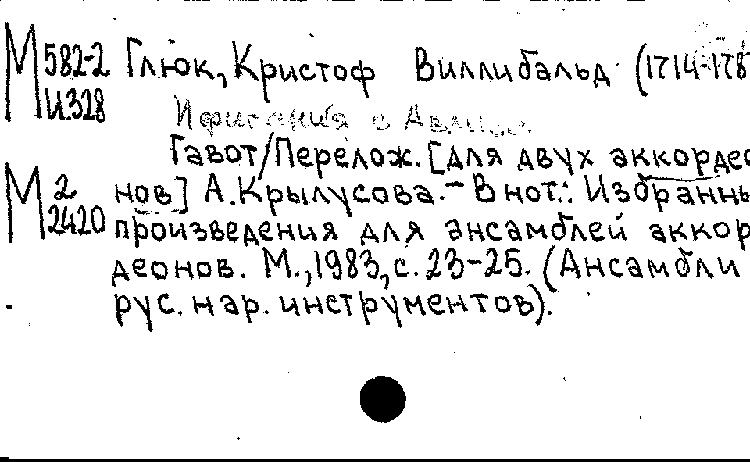 М 582-2 Глюк, Кристоф Виллибальд (1714-178
И328
Ифигения в Авлиде
Гавот/Перелож. [для двух аккордео
М 2 нов] А.Крылусова.-В нот.: Избранны
2420 произведения для ансамблей аккор
деонов. М.,1983,с. 23-25. (Ансамбли
рус. нар. инструментов).